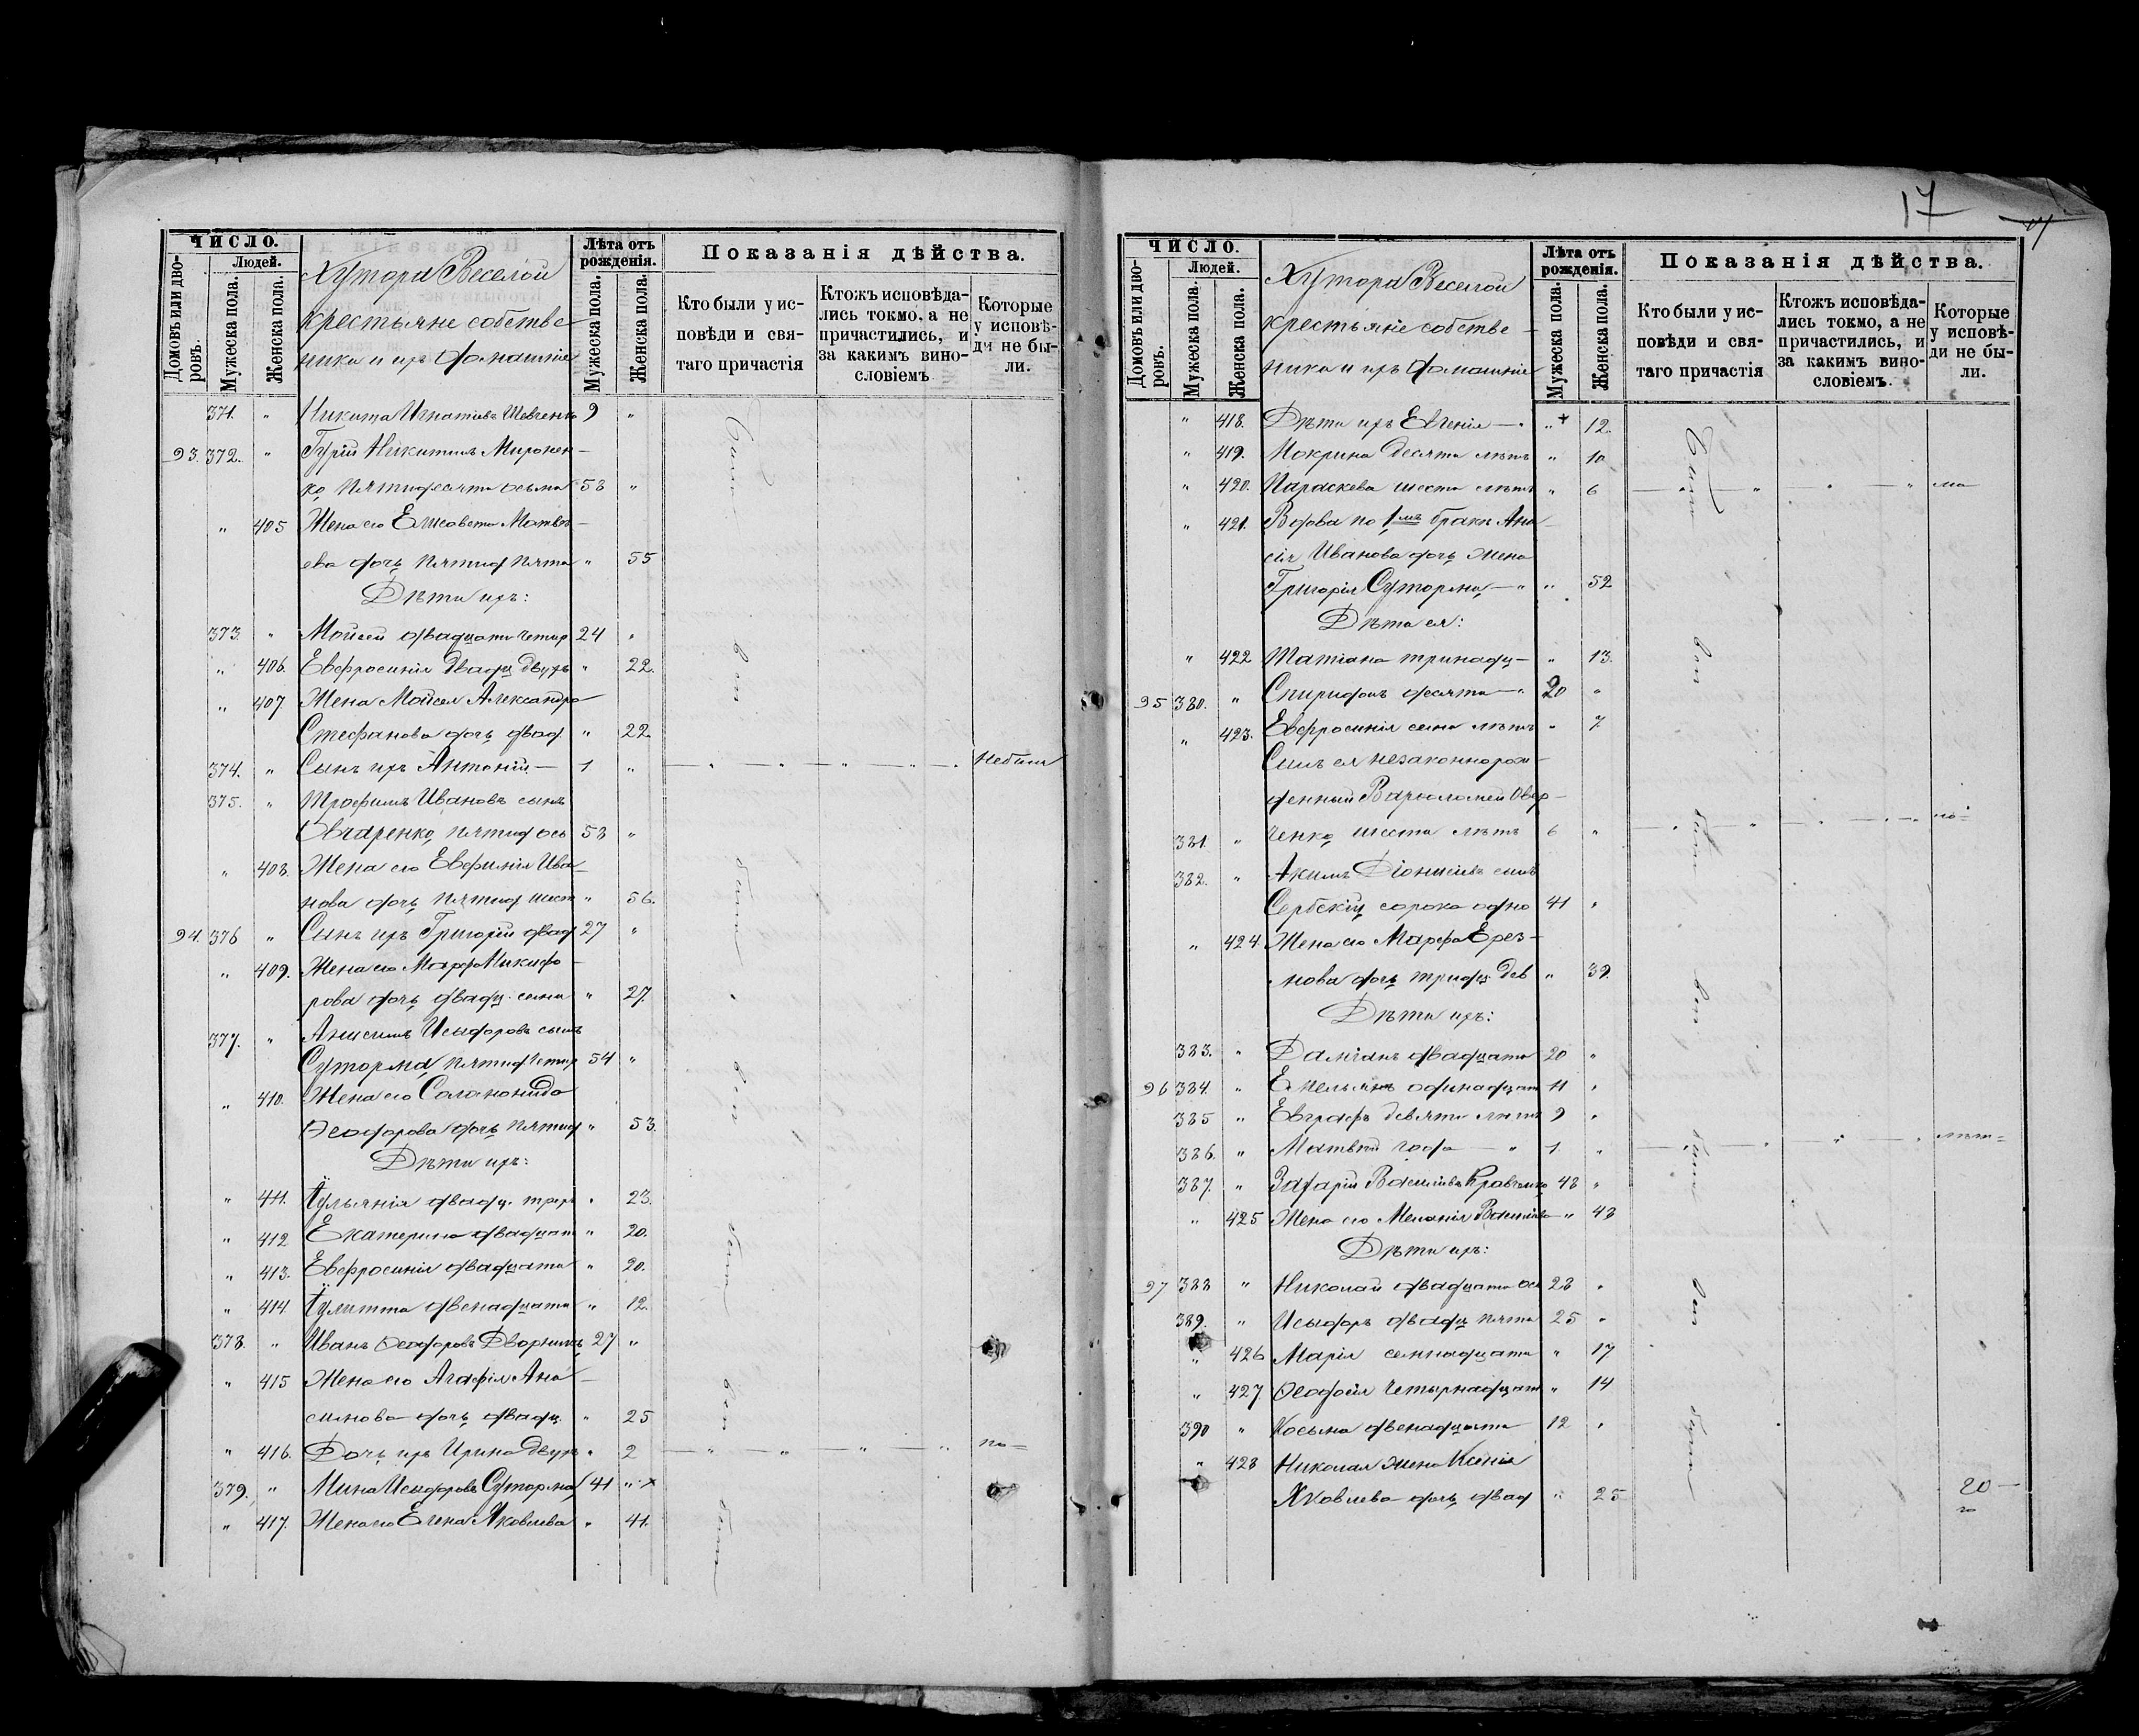 ЧИСЛО.
Домовъ или дво-
ровъ.
Людей.
Мужеска пола.
Женска пола.
Хутора Веселой
крестьяне собстве-
ники и ихъ домашніе
Лѣта отъ
рожденія.
Мужеска пола.
Женска пола.
Показанія дѣйства.
Кто были у ис-
повѣди и свя-
таго причастія
Ктожъ исповѣда-
лись токмо, а не
причастились, и
за какимъ вино-
словіемъ
Которые
у исповѣ-
ди не бы-
ли.
371. " Никита Игнатіевъ Шевченко 9 "
93. 372. " Гурій Никитинъ Мироннен-
ко, пятидесяти осьми 58 "
" 405 Жена его Елисавета Матвѣ-
ева дочь пятид пяти " 55
Дѣти ихъ:
373. " Мойсей двадцати четыр 24 "
" 406. Евфросинія двадц двухъ " 22.
" 407. Жена Мойсея Александра
Стефанова дочь двад. " 22
374. " Сынъ ихъ Антоній — 1 " — " — " — " — " — небыли
375. " Трофимъ Ивановъ сынъ
Овчаренко, пятид ось 58 "
" 408. Жена его Евфимія Ива-
нова дочь пятид шест " 56.
94. 376 " Сынъ ихъ Григорій двад 27 "
" 409. Жена его Марфа Никифо-
рова дочь двадц. семи " 27.
377. " Анисимъ Исидоровъ сынъ
Суторма, пятид четыр 54 "
" 410. Жена его Соломонида
Ѳеодорова дочь пятид " 53.
Дѣти ихъ:
" 411. Іульянія двадц. трехъ " 23.
" 412 Екатерина двадцати " 20.
" 413. Евфросинія двадцати " 20.
" 414. Іулитта двенадцати " 12.
378. " Иванъ Ѳеодоровъ Дворникъ 27 "
" 415 Жена его Агафія Ана-
симова дочь двадц. " 25
" 416. Дочь ихъ Ирина двухъ " 2 — " — " — " — " по —
379. " Мина Исидоровъ Суторма, 41 " x
" 417. Жена его Елена Яковлева " 41.
Были
вси
были
вси
были
вси
были
17
ЧИСЛО.
Домовъ или дво-
ровъ.
Людей.
Мужеска пола.
Женска пола.
Хутора Веселой
крестьяне собстве-
ники и ихъ домашніе
Лѣта отъ
рожденія.
Мужеска пола.
Женска пола.
Показанія дѣйства.
Кто были у ис-
повѣди и свя-
таго причастія
Ктожъ исповѣда-
лись токмо, а не
причастились, и
за какимъ вино-
словіемъ.
Которые
у исповѣ-
ди не бы-
ли.
" 418. Дѣти ихъ Евгенія — " + 12.
" 419. Мокрина десяти лѣтъ " 10
" 420. Параскева шести лѣтъ " 6 — " — " — " — " ма
" 421. Вдова по 1мъ бракѣ Ана-
сія Иванова дочь жена
Григорія Суторма, — " " 52
Дѣти ея:
" 422 Татіана тринадц — " 13.
95 380. " Спиридонъ десяти — " 20 "
" 423. Евфросинія семи лѣтъ " 7
Сынъ ея незаконнорож-
денный Варфоломей Овер-
381. " ченко, шести лѣтъ 6 " — " — " — " — " ло=
382. " Акимъ Діонисіевъ сынъ
Сербскій, сорока одно 41 "
" 424. Жена его Марфа
нова дочь тридц. дев " 39.
Дѣти ихъ:
383. " Даміанъ двадцати 20 "
96 384. " Емельянъ одинадцати 11 "
385 " Евграфъ девяти лѣтъ 9 "
386. " Матвѣй года — " 1 " — " — " — " — " лѣт=
387. " Захарій Василіевъ Кравченко 48 "
" 425 Жена его Меланія Василіева " 48
Дѣти ихъ:
97 388 " Николай двадцати ось 28 "
389. " Исидоръ двадц пяти 25 "
" 426 Марія семнадцати " 17
" 427 Ѳеодосія четырнадцат " 14
390 " Косьма двенадцати 12 "
" 428 Николая жена Ксенія
Яковлева дочь двад " 25
Были
вси
были
вси
были
вси
были
20 —